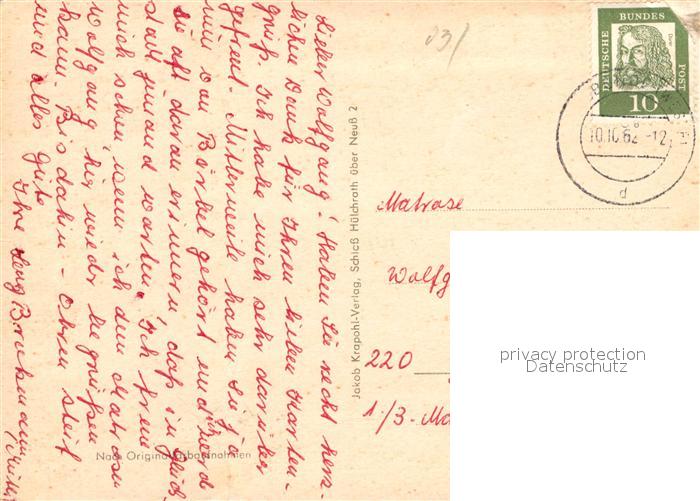 Lieber Wolfgang! Haben Sie recht herz-
lichen Dank für Ihren lieben Karten-
gruß. Ich habe mich sehr darüber
gefreut. Mittlerweile haben Sie ja
nun von Bärbel gehört und ich werd
Sie oft daran erinnern daß in
dort jemand wartet. Ich freue
mich schon wenn ich den Matrosen
Wolfgang hier wieder begrüßen
kann. Bis dahin - Ohren steif
und alles Gute
Ihre
Jakob Krapohl-Verlag, Schloß Hülchrath über Neuß 2
Nach Original-Farbaufnahmen
031
DEUTSCHE BUNDES POST
Dürer
10
10.10.62-12
d
Matrose
Wolfg
220
1./3. Ma
privacy protection
Datenschutz